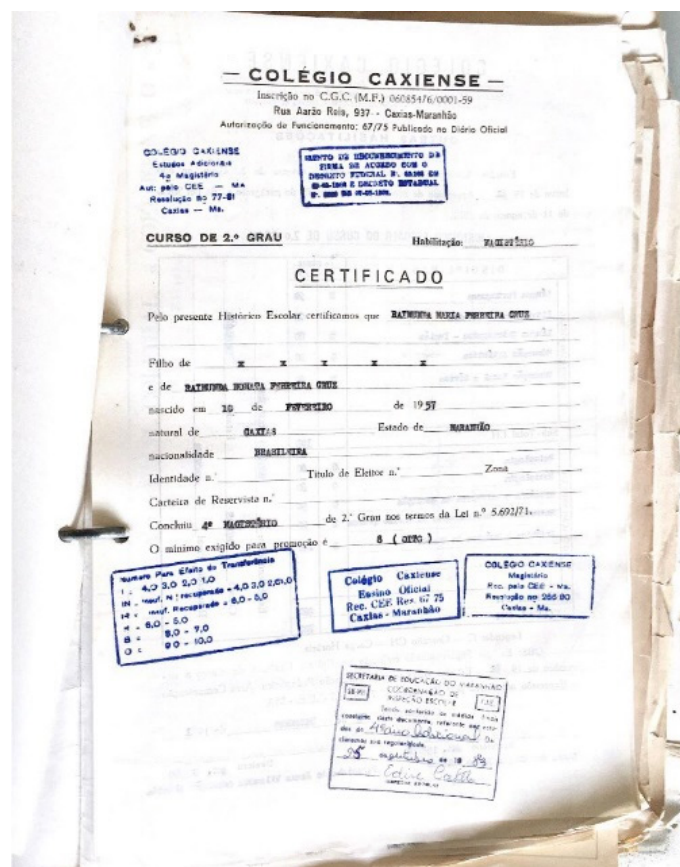 — COLÉGIO CAXIENSE —
Inscrição no C.G.C. (M.F.) 06085476/0001-59
Rua Aarão Reis, 937 - Caxias-Maranhão
Autorização de Funcionamento: 67/75 Publicado no Diário Oficial
COLÉGIO CAXIENSE
Estudos Adicionais
4º Magistério
Aut. pelo CEE — MA
Resolução nº 77-81
Caxias — Ma.
ISENTO DE RECONHECIMENTO DE
FIRMA DE ACORDO COM O
DECRETO FEDERAL N.
E DECRETO ESTADUAL
CURSO DE 2.º GRAU
Habilitação: MAGISTÉRIO
CERTIFICADO
Pelo presente Histórico Escolar certificamos que RAIMUNDA MARIA FERREIRA CRUZ
Filho de x x x x x
e de RAIMUNDA FERREIRA CRUZ
nascido em 10 de FEVEREIRO de 1957
natural de CAXIAS Estado de MARANHÃO
nacionalidade BRASILEIRA
Identidade n.º Titulo de Eleitor n.º Zona
Carteira de Reservista n.º
Concluiu 4º MAGISTÉRIO de 2.º Grau nos termos da Lei n.º 5.692/71.
O mínimo exigido para promoção é 8 ( OITO )
Numero Para Efeito de Transferência
I = 4,0 3,0 2,0 1,0
IN - Insuf. N recuperado - 4,0 3,0 2,0 1,0
Insuf. Recuperado = 6,0 - 5,0
6,0 - 5,0
B = 8,0 - 7,0
O = 9 0 - 10,0
Colégio Caxiense
Ensino Oficial
Rec. CEE Res. 67 75
Caxias - Maranhão
COLÉGIO CAXIENSE
Magistério
Rec. pelo CEE - Ma.
Resolução nº 256 80
Caxias - Ma.
SECRETARIA DE EDUCAÇÃO DO MARANHÃO
COORDENAÇÃO DE
INSPEÇÃO ESCOLAR
Tendo conferido as médias finais
constantes deste documento, referente aos estu-
dos do 4º ano Adicional De-
claramos sua regularidade.
25 de 19 83